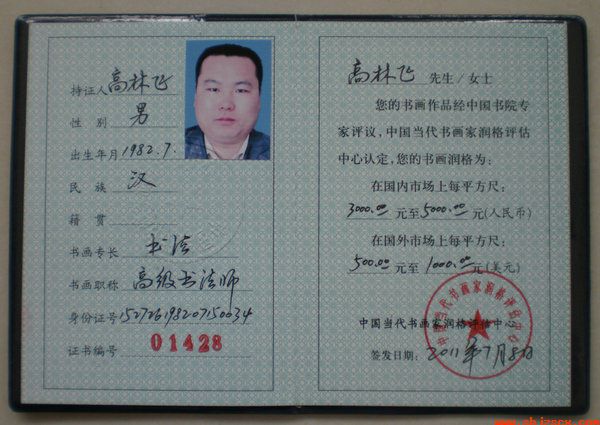 持证人 高林飞
性别 男
出生年月 1982.7.
民族 汉
籍贯
书画专长 书法
书画职称 高级书法师
身份证号 152726198207150034
证书编号 01428
高林飞 先生/女士
您的书画作品经中国书院专
家评议,中国当代书画家润格评估
中心认定,您的书画润格为:
在国内市场上每平方尺:
3000.00 元至 5000.00 元(人民币)
在国外市场上每平方尺:
500.00 元至 1000.00 元(美元)
中国当代书画家润格评估中心
签发日期: 2011年7月8日
中国当代书画家润格评估中心